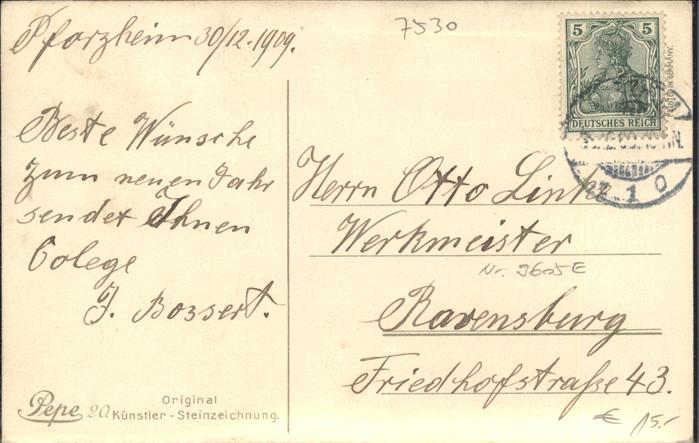 Pforzheim 30/12. 1909.
7530
Beste Wünsche
zum neuen Jahr
sendet Ihnen
Colege
J. Bossert.
5 5
DEUTSCHES REICH
1 0
Herrn Otto Link
Werkmeister
Nr. 9605E
Ravensburg
Friedhofstraße 43.
€ 15.-
Pepe 20
Original
Künstler - Steinzeichnung.